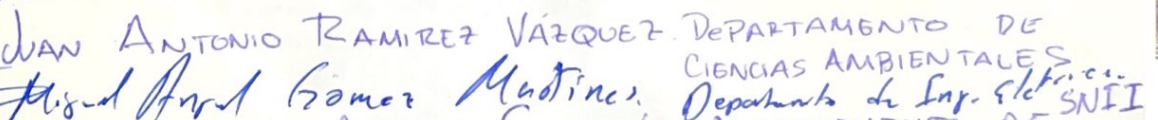 JUAN ANTONIO RAMIREZ VÁZQUEZ. DEPARTAMENTO DE
CIENCIAS AMBIENTALES
Miguel Angel Gómez Martínez, Departamento de Ing. Eléctrica.
SNII